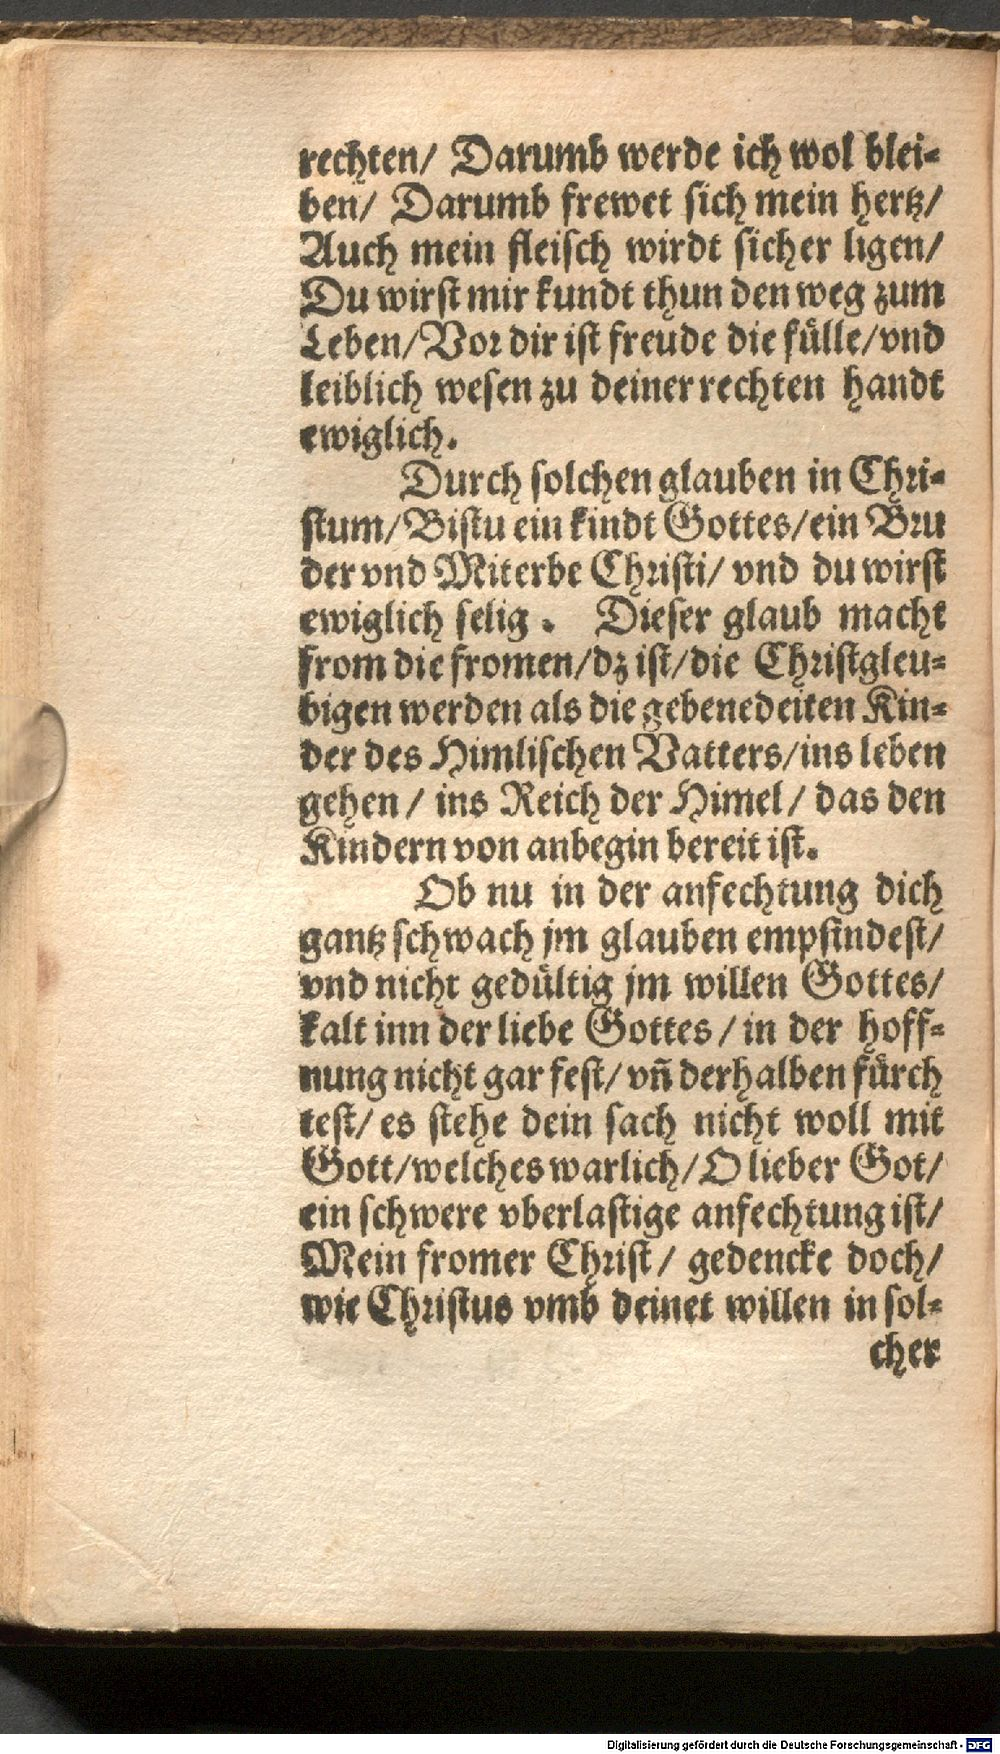 rechten/ Darumb werde ich wol blei⸗
ben/ Darumb frewet sich mein hertz/
Auch mein fleisch wirdt sicher ligen/
Du wirst mir kundt thun den weg zum
Leben/Vor dir ist freude die fülle/vnd
leiblich wesen zu deiner rechten handt
ewiglich.
Durch solchen glauben in Chri⸗
stum/Bistu ein kindt Gottes/ein Bru
der vnd Miterbe Christi/ vnd du wirst
ewiglich selig. Dieser glaub macht
from die fromen/dz ist/die Christgleu⸗
bigen werden als die gebenedeiten Kin⸗
der des Himlischen Vatters/ins leben
gehen/ ins Reich der Himel/ das den
Kindern von anbegin bereit ist.
Ob nu in der anfechtung dich
gantz schwach jm glauben empfindest/
vnd nicht gedültig jm willen Gottes/
kalt inn der liebe Gottes/in der hoff⸗
nung nicht gar fest/vñ derhalben fürch
test/es stehe dein sach nicht woll mit
Gott/welches warlich/O lieber Got/
ein schwere vberlastige anfechtung ist/
Mein fromer Christ/ gedencke doch/
wie Christus vmb deinet willen in sol⸗
cher
Digitalisierung gefördert durch die Deutsche Forschungsgemeinschaft - DFG